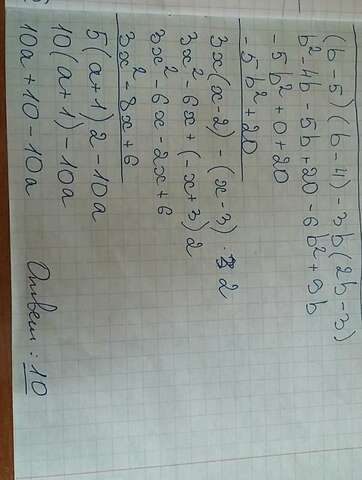 (b-5)(b-4)-3b(2b-3)
b²-4b-5b+20-6b²+9b
-5b²+0+20
-5b²+20
3x(x-2)-(x-3)·2
3x²-6x+(-x+3)2
3x²-6x-2x+6
3x²-8x+6
5(a+1)2-10a
10(a+1)-10a
10a+10-10a Ответ: 10